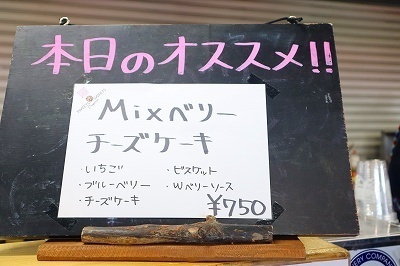 本日のオススメ!!
Mixベリー
チーズケーキ
・いちご ・ビスケット
・ブルーベリー ・Wベリーソース
・チーズケーキ ¥750
ERY COMPAN